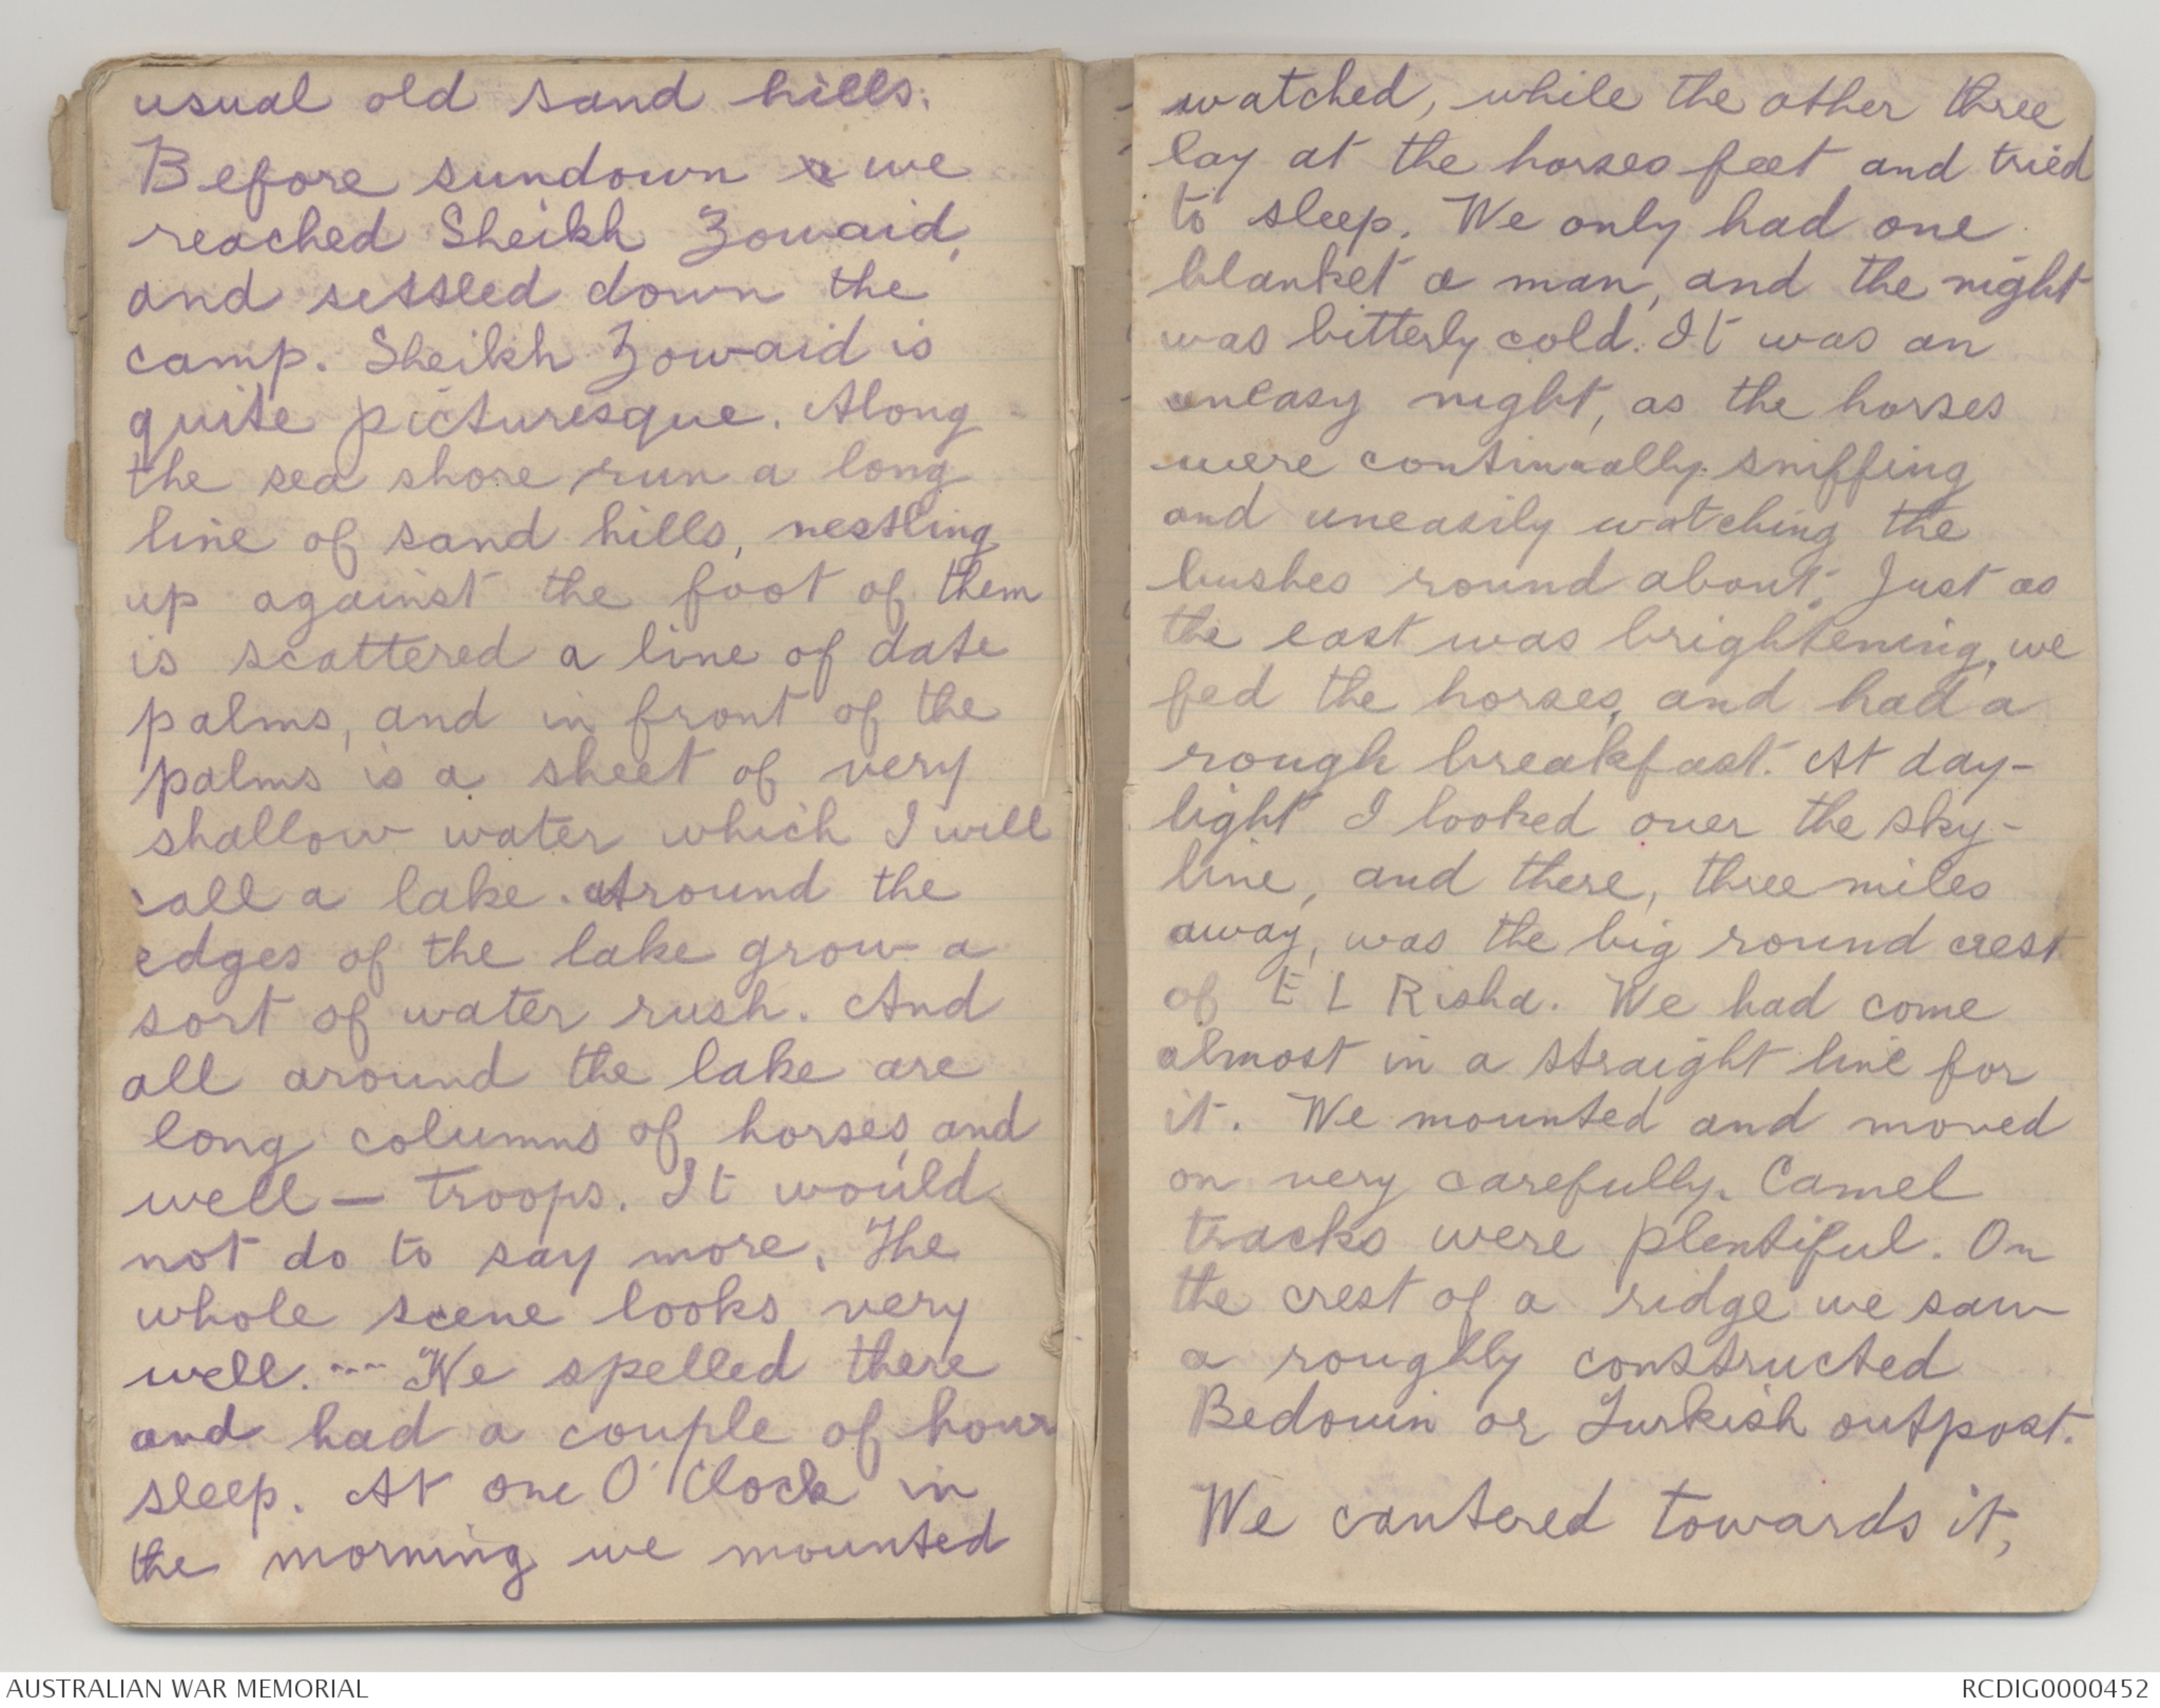 usual old sand hills.
Before sundown we
reached Sheikh Zowaid,
and settled down the
camp. Sheikh Zowaid is
quite picturesque. Along
the sea shore run a long
line of sand hills, nestling
up against the foot of them
is scattered a line of date
palms, and in front of the
palms is a sheet of very
shallow water which I will
call a lake. Around the
edges of the lake grow a
sort of water rush. And
all around the lake are
long columns of horses, and
well — troops. It would
not do to say more. The
whole scene looks very
well. --- We spelled there
and had a couple of hour
sleep. At one O'Clock in
the morning we mounted
watched, while the other three
lay at the horses feet and tried
to sleep. We only had one
blanket a man, and the night
was bitterly cold. It was an
uneasy night, as the horses
were continually sniffing
and uneasily watching the
bushes round about. Just as
the east was brightening, we
fed the horses, and had a
rough breakfast. At day-
light I looked over the sky-
line, and there, three miles
away, was the big round crest
of EL Risha. We had come
almost in a straight line for
it. We mounted and moved
on very carefully. Camel
tracks were plentiful. On
the crest of a ridge we saw
a roughly constructed
Bedouin or Turkish outpost.
We cantered towards it,
AUSTRALIAN WAR MEMORIAL
RCDIG0000452